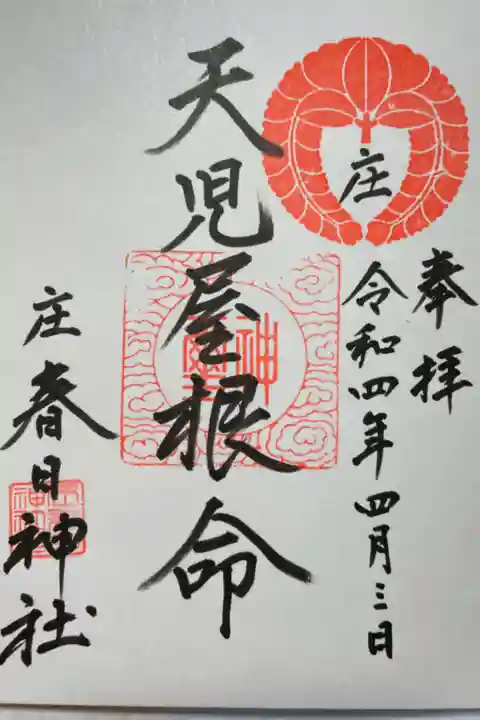 奉拝
庄
令和四年四月三日
天児屋根命
神璽
庄春日神社